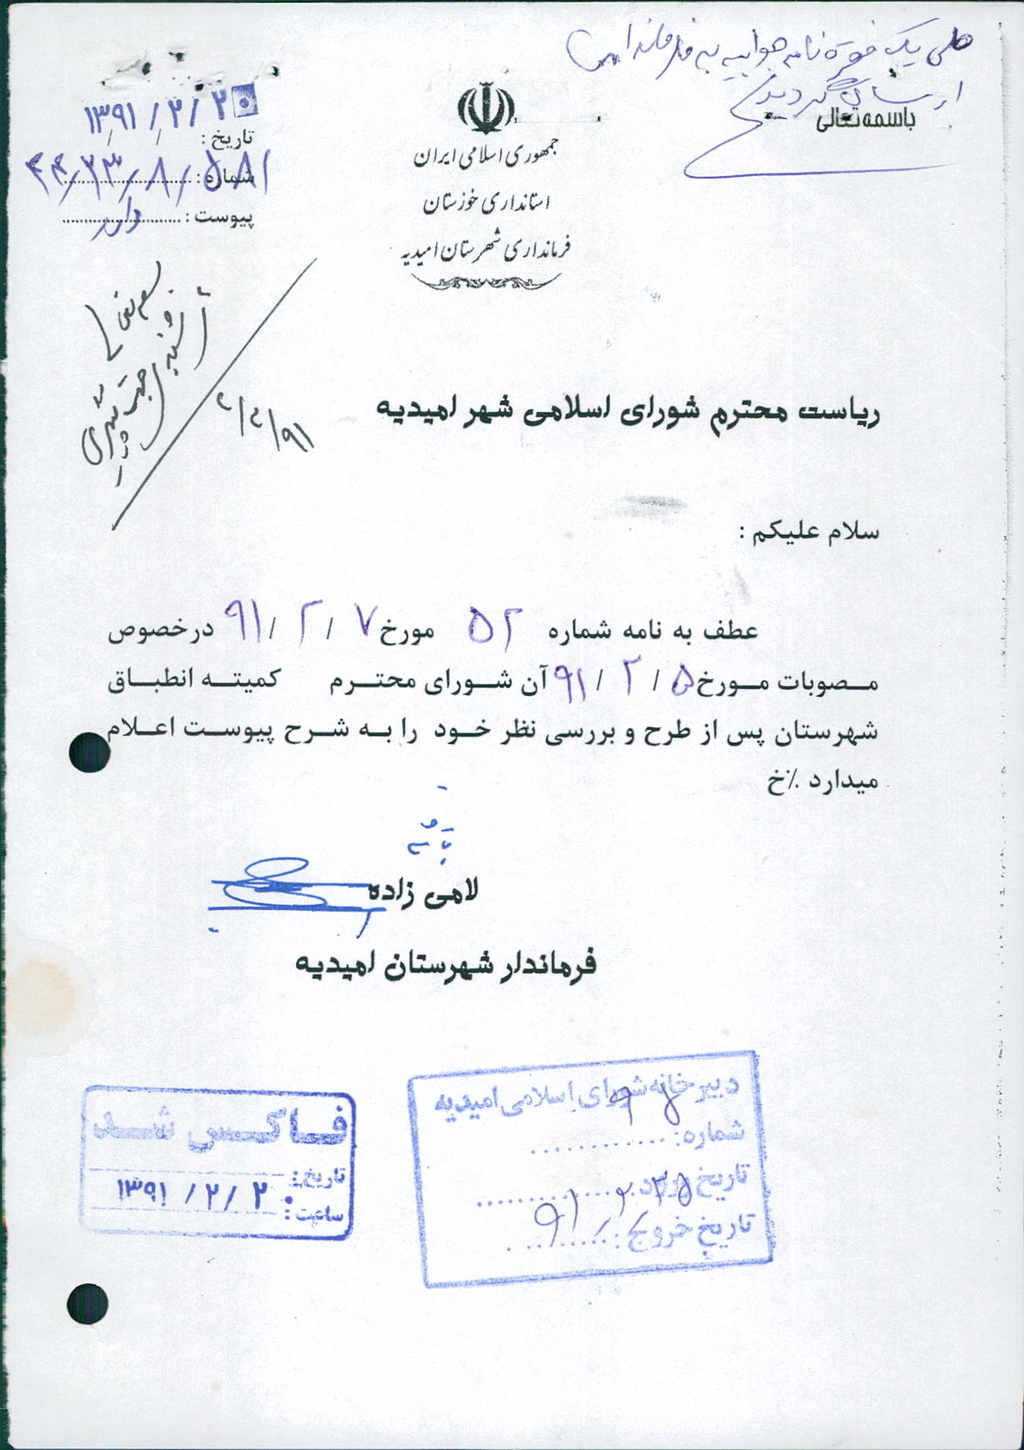 طی یک فقره نامه جوابیه به فرمانداری
ارسال گردید
باسمه تعالی
جمهوری اسلامی ایران
استانداری خوزستان
فرمانداری شهرستان امیدیه
تاریخ : ۱۳۹۱/۲/۲۰
شماره : ۴۴/۲۳/۸/۵۸۱
پیوست : دارد
۹۱/۲/۲
ریاست محترم شورای اسلامی شهر امیدیه
سلام علیکم :
عطف به نامه شماره ۵۲ مورخ ۹۱/۲/۷ درخصوص
مصوبات مورخ ۹۱/۲/۵ آن شورای محترم کمیته انطباق
شهرستان پس از طرح و بررسی نظر خود را به شرح پیوست اعلام
میدارد ./خ
لامی زاده
فرماندار شهرستان امیدیه
دبیرخانه شورای اسلامی امیدیه
شماره:
تاریخ ورود: ۹۱/۲/۲۵
تاریخ خروج:
فاکس شد
تاریخ:
۱۳۹۱/۲/۲۰
ساعت: